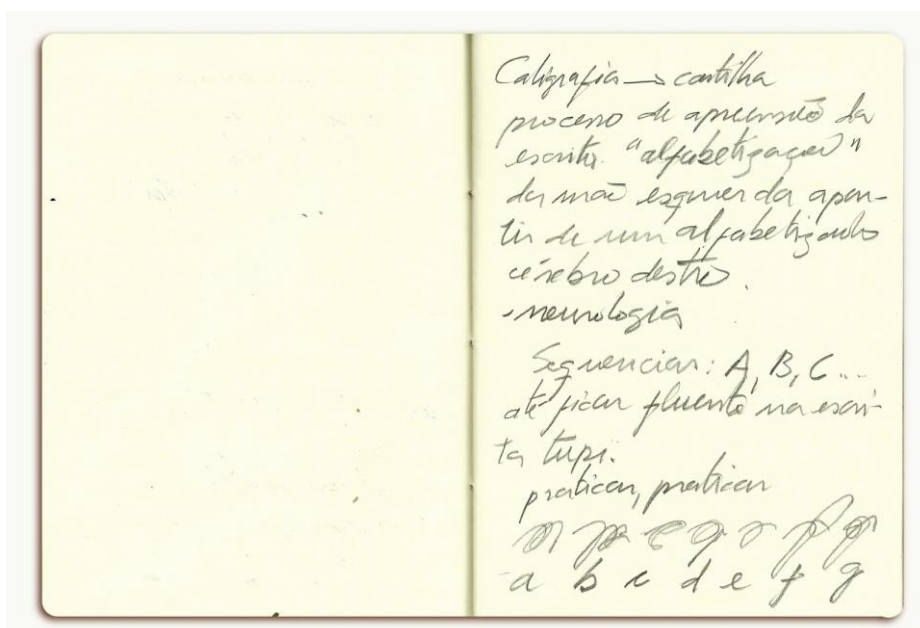 Caligrafia → cartilha
processo de apreensão da
escrita. "alfabetização"
da mão esquerda apar-
tir de um alfabetizado
cérebro destro.
- neurologia
Sequenciar: A, B, C...
até ficar fluente na escri-
ta tupi.
praticar, praticar
a b c d e f g